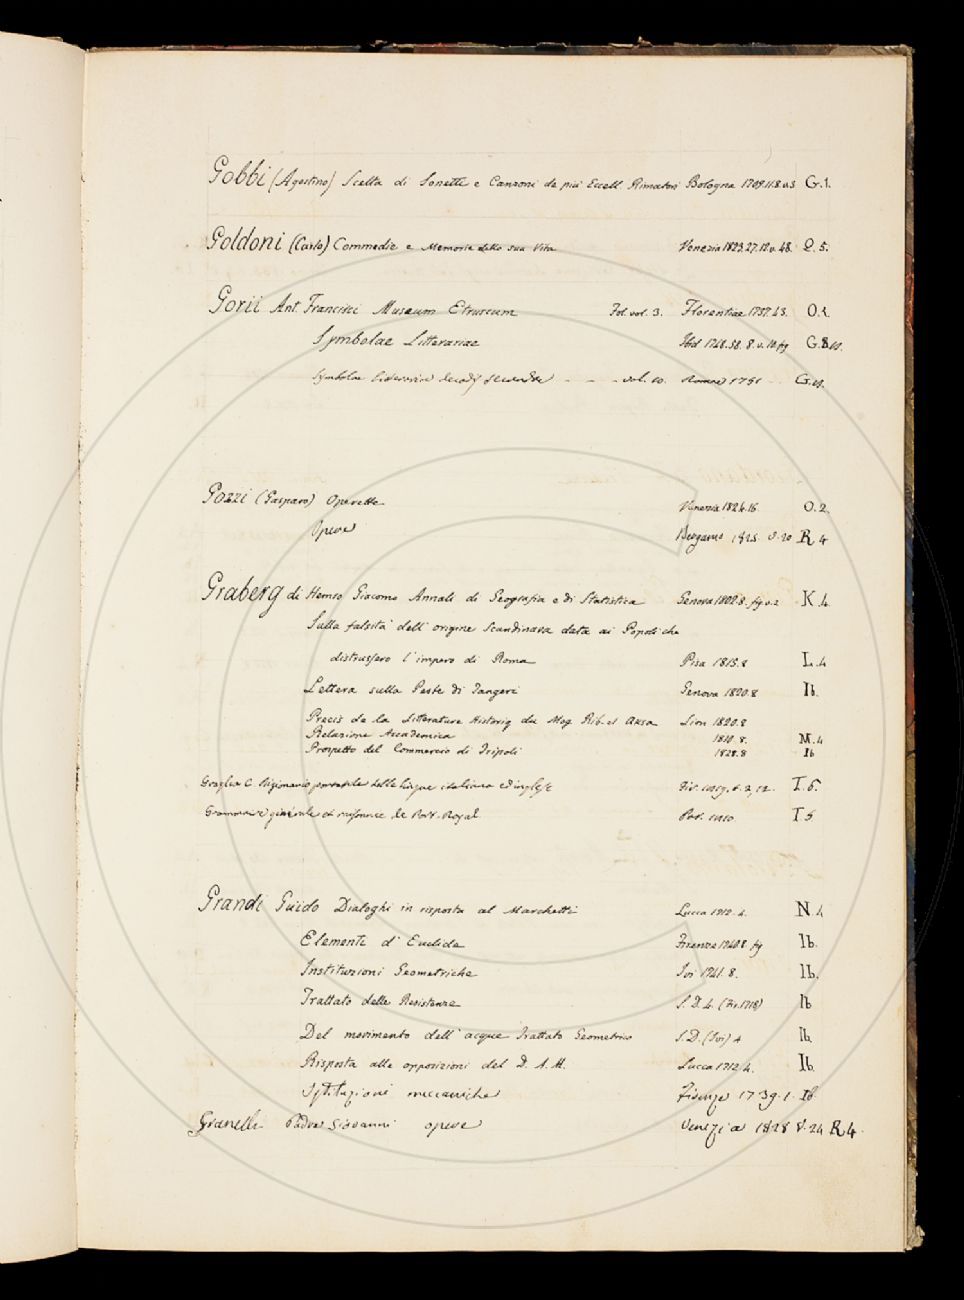 Gobbi (Agostino) Scelta di Sonetti e Canzoni de più Eccell. Rimatori Bologna 1709.11.8.v.3 G.1.
Goldoni (Carlo) Commedie e Memorie della sua Vita Venezia 1823.27.12 v. 48. Q. 5.
Gorii Ant. Francisci Museum Etruscum Fol. vol. 3. Florentiae 1737.43. O.1.
Symbolae Litterariae Ibid 1748.58. 8. v. 10. fig G.8
Symbolae Litterariae decadis secundae - - - vol. 10. Romae 1751 G.
Gozzi (Gasparo) Operette Venezia 1824.16. O.2.
Opere Bergamo 1825 v. 20 R 4
Graberg di Hemso Giacomo Annali di Geografia e di Statistica Genova 1802.8. fig v. 2 K.4.
Sulla falsità dell' origine Scandinava data ai Popoli che
distrussero l'impero di Roma Pisa 1815.8 L.4
Lettera sulla Peste di Tangeri Genova 1820.8 Ib.
Precis de la Litterature Historiq du Mog Rib el Aksa Lion 1820.8
Relazione Accademica 1810.8. M.4
Prospetto del Commercio di Tripoli 1828.8 Ib
Graglia C. Dizionario portatile delle lingue italiana ed inglese T.5.
Grammaire générale et raisonnée de Port-Royal Par. 1810 T.5
Grandi Guido Dialoghi in risposta al Marchetti Lucca 1712.4. N.4
Elementi d'Euclide Firenze 1740.8. fig Ib.
Instituzioni Geometriche Ivi 1741.8. Ib.
Trattato delle Resistenze S.D.4. (Fir. 1718) Ib
Del movimento dell' acque Trattato Geometrico S.D. (Ivi) 4 Ib.
Risposta alle opposizioni del D. A. M. Lucca 1712.4. Ib.
Istituzioni meccaniche Firenze 1739.1. Ib.
Granelli Padre Giovanni opere Venezia 1828 v. 24 R 4.